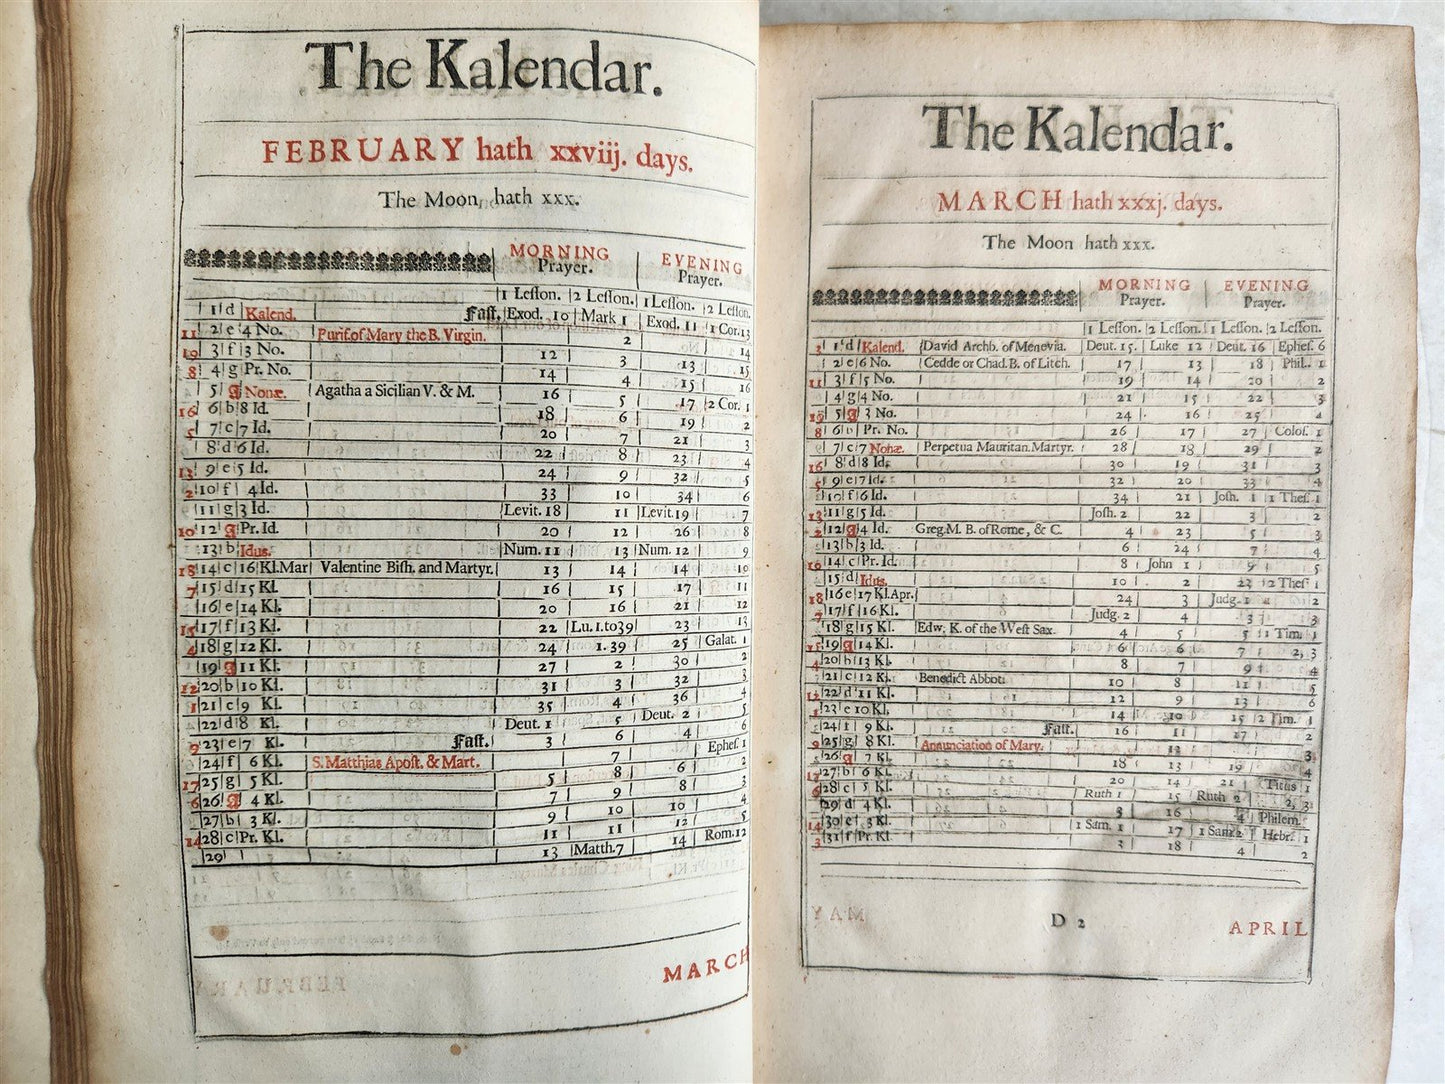 The Kalendar.
FEBRUARY hath xxviij. days.
The Moon hath xxx.
MORNING Prayer. EVENING Prayer.
1 Leſſon. 2 Leſſon. 1 Leſſon. 2 Leſſon.
1 d Kalend. Faſt. Exod. 10 Mark 1 Exod. 11 1 Cor. 13
11 2 e 4 No. Purif. of Mary the B. Virgin. 2 14
19 3 f 3 No. 12 3 13 15
8 4 g Pr. No. 14 4 15 16
5 A Nonæ. Agatha a Sicilian V. & M. 16 5 17 2 Cor. 1
16 6 b 8 Id. 18 6 19 2
5 7 c 7 Id. 20 7 21 3
8 d 6 Id. 22 8 23 4
13 9 e 5 Id. 24 9 32 5
2 10 f 4 Id. 33 10 34 6
11 g 3 Id. Levit. 18 11 Levit. 19 7
10 12 A Pr. Id. 20 12 26 8
13 b Idus. Num. 11 13 Num. 12 9
18 14 c 16 Kl. Mar Valentine Biſh. and Martyr. 13 14 14 10
7 15 d 15 Kl. 16 15 17 11
16 e 14 Kl. 20 16 21 12
15 17 f 13 Kl. 22 Lu. 1. to 39 23 13
4 18 g 12 Kl. 24 1. 39 25 Galat. 1
19 A 11 Kl. 27 2 30 2
12 20 b 10 Kl. 31 3 32 3
1 21 c 9 Kl. 35 4 36 4
22 d 8 Kl. Deut. 1 5 Deut. 2 5
9 23 e 7 Kl. Faſt. 3 6 4 6
24 f 6 Kl. S. Matthias Apoſt. & Mart. 7 Epheſ. 1
17 25 g 5 Kl. 5 8 6 2
6 26 A 4 Kl. 7 9 8 3
27 b 3 Kl. 9 10 10 4
14 28 c Pr. Kl. 11 11 12 5
29 13 Matth. 7 14 Rom. 12
MARCH
The Kalendar.
MARCH hath xxxj. days.
The Moon hath xxx.
MORNING Prayer. EVENING Prayer.
1 Leſſon. 2 Leſſon. 1 Leſſon. 2 Leſſon.
3 1 d Kalend. David Archb. of Menevia. Deut. 15. Luke 12 Deut. 16 Epheſ. 6
2 e 6 No. Cedde or Chad. B. of Litch. 17 13 18 Phil. 1
11 3 f 5 No. 19 14 20 2
4 g 4 No. 21 15 22 3
19 5 A 3 No. 24 16 25 4
8 6 b Pr. No. 26 17 27 Coloſ. 1
7 c 7 Nonæ. Perpetua Mauritan. Martyr. 28 18 29 2
16 8 d 8 Id. 30 19 31 3
5 9 e 7 Id. 32 20 33 4
10 f 6 Id. 34 21 Joſh. 1 1 Theſ. 1
13 11 g 5 Id. Joſh. 2 22 3 2
2 12 A 4 Id. Greg. M. B. of Rome, & C. 4 23 5 3
13 b 3 Id. 6 24 7 4
10 14 c Pr. Id. 8 John 1 9 5
15 d Idus. 10 2 23 2 Theſ. 1
18 16 e 17 Kl. Apr. 24 3 Judg. 1 2
7 17 f 16 Kl. Judg. 2 4 3 3
18 g 15 Kl. Edw. K. of the Weſt Sax. 4 5 5 1 Tim. 1
15 19 A 14 Kl. 6 6 7 2, 3
4 20 b 13 Kl. 8 7 9 4
21 c 12 Kl. Benedict Abbot. 10 8 11 5
12 22 d 11 Kl. 12 9 13 6
1 23 e 10 Kl. 14 10 15 2 Tim. 1
24 f 9 Kl. Faſt. 16 11 17 2
9 25 g 8 Kl. Annunciation of Mary. 12 3
26 A 7 Kl. 18 13 19 4
17 27 b 6 Kl. 20 14 21 Titus 1
6 28 c 5 Kl. Ruth 1 15 Ruth 2 2, 3
29 d 4 Kl. 3 16 4 Philem.
14 30 e 3 Kl. 1 Sam. 1 17 1 Sam. 2 Hebr. 1
3 31 f Pr. Kl. 3 18 4 2
D 2
APRIL